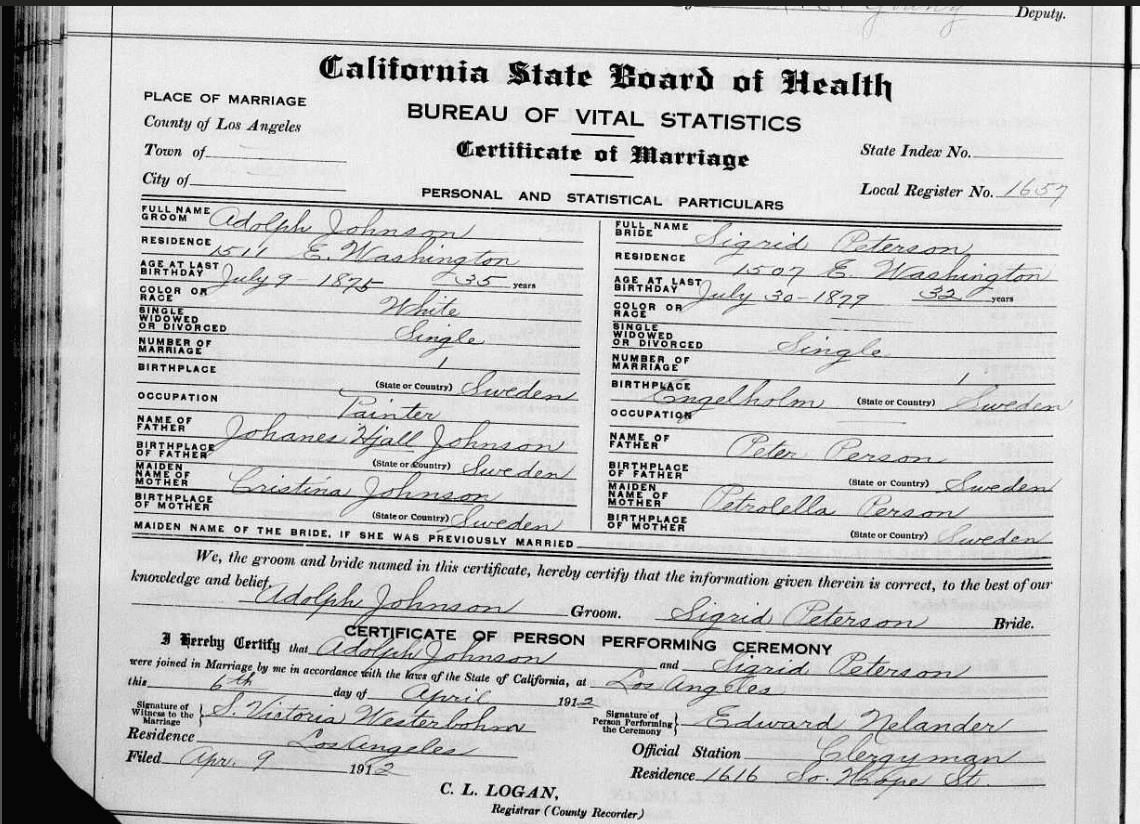 Deputy.
California State Board of Health
BUREAU OF VITAL STATISTICS
Certificate of Marriage
PLACE OF MARRIAGE
County of Los Angeles
Town of
City of
State Index No.
Local Register No. 1657
PERSONAL AND STATISTICAL PARTICULARS
FULL NAME GROOM Adolph Johnson
RESIDENCE 1511 E. Washington
AGE AT LAST BIRTHDAY July 9 - 1875 35 years
COLOR OR RACE White
SINGLE WIDOWED OR DIVORCED Single
NUMBER OF MARRIAGE 1
BIRTHPLACE (State or Country) Sweden
OCCUPATION Painter
NAME OF FATHER Johanes Hjall Johnson
BIRTHPLACE OF FATHER (State or Country) Sweden
MAIDEN NAME OF MOTHER Cristina Johnson
BIRTHPLACE OF MOTHER (State or Country) Sweden
FULL NAME BRIDE Sigrid Peterson
RESIDENCE 1507 E. Washington
AGE AT LAST BIRTHDAY July 30 - 1879 32 years
COLOR OR RACE
SINGLE WIDOWED OR DIVORCED Single
NUMBER OF MARRIAGE 1
BIRTHPLACE Engelholm (State or Country) Sweden
OCCUPATION
NAME OF FATHER Peter Person
BIRTHPLACE OF FATHER (State or Country) Sweden
MAIDEN NAME OF MOTHER Petrolella Person
BIRTHPLACE OF MOTHER (State or Country) Sweden
MAIDEN NAME OF THE BRIDE, IF SHE WAS PREVIOUSLY MARRIED
We, the groom and bride named in this certificate, hereby certify that the information given therein is correct, to the best of our
knowledge and belief.
Adolph Johnson Groom. Sigrid Peterson Bride.
CERTIFICATE OF PERSON PERFORMING CEREMONY
I Hereby Certify that Adolph Johnson and Sigrid Peterson
were joined in Marriage by me in accordance with the laws of the State of California, at Los Angeles
this 6th day of April 1912
Signature of Witness to the Marriage } S. Victoria Westerbohm
Residence Los Angeles
Filed Apr. 9 1912
Signature of Person Performing the Ceremony } Edward Nelander
Official Station Clergyman
Residence 1616 So. Hope St.
C. L. LOGAN,
Registrar (County Recorder)